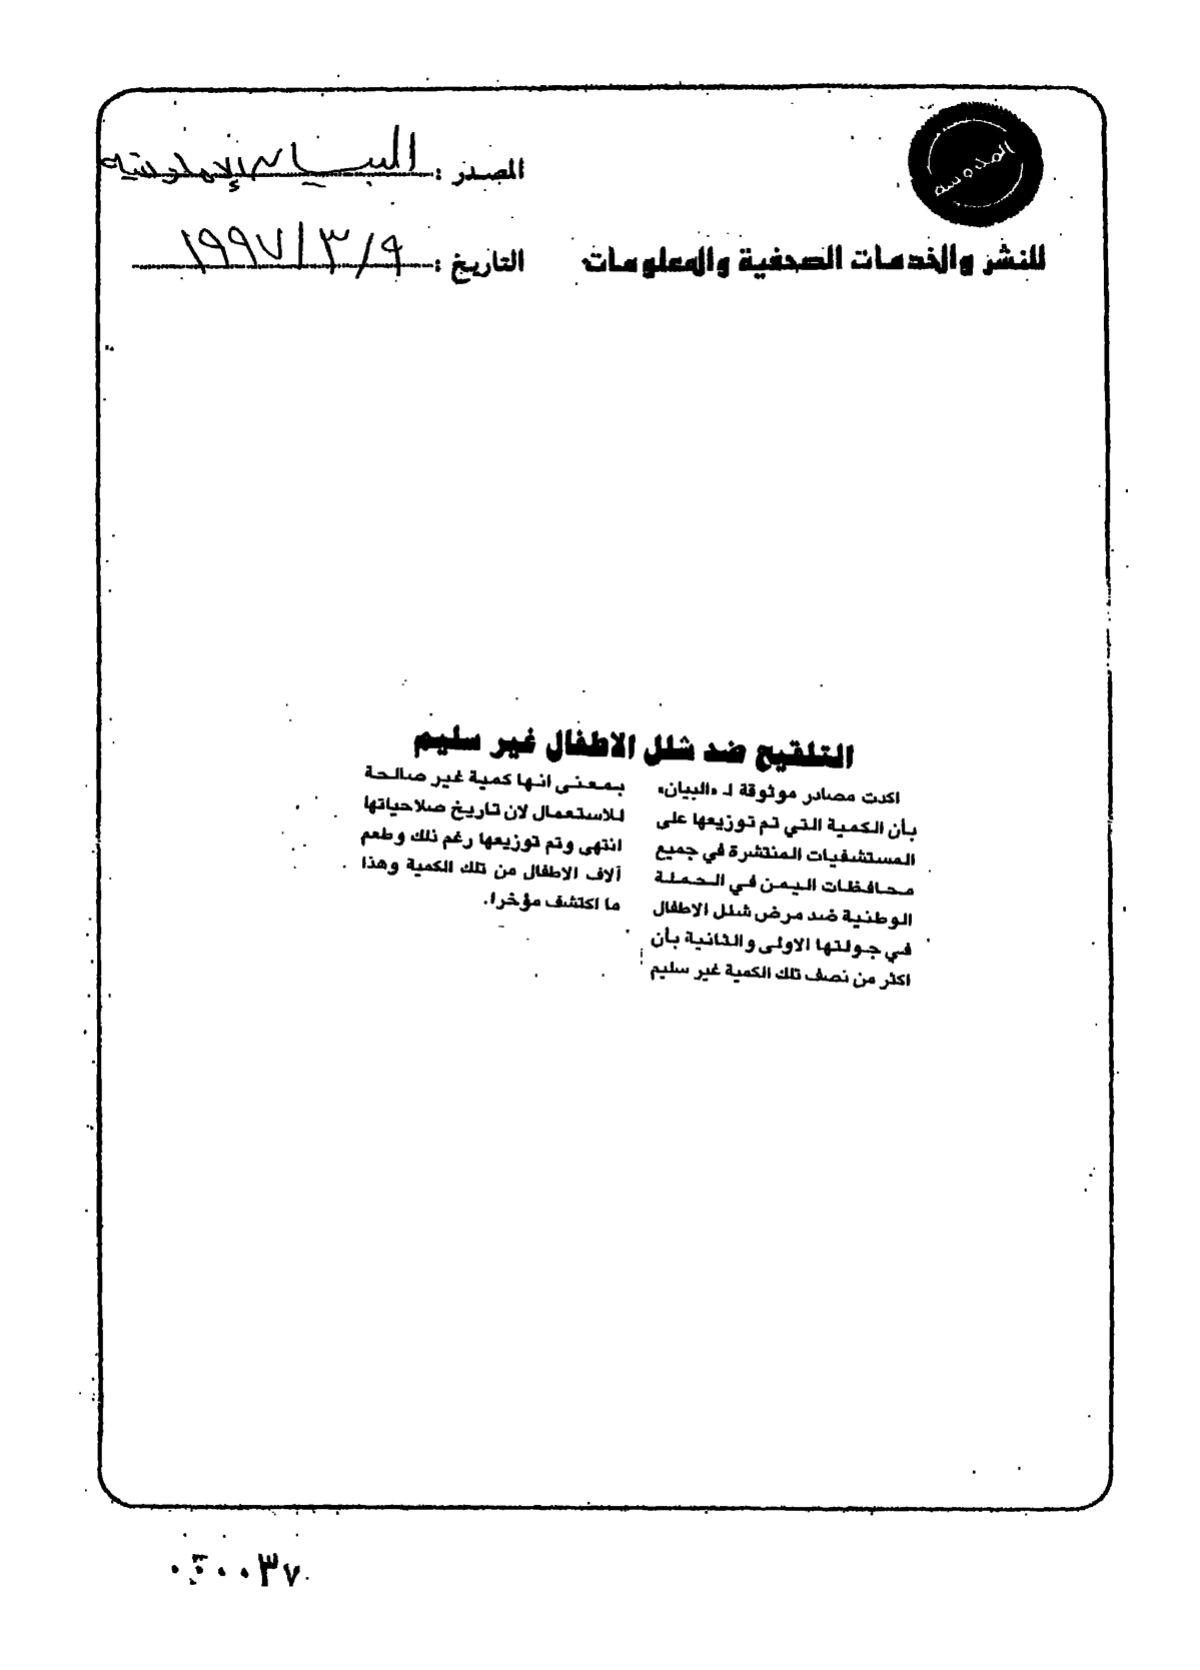 المدوسة
للنشر والخدمات الصحفية والمعلومات
المصدر : البيان الإماراتية
التاريخ : ١٩٩٧/٣/٩
التلقيح ضد شلل الاطفال غير سليم
اكدت مصادر موثوقة لـ «البيان»
بأن الكمية التي تم توزيعها على
المستشفيات المنتشرة في جميع
محافظات اليمن في الحملة
الوطنية ضد مرض شلل الاطفال
في جولتها الاولى والثانية بأن
اكثر من نصف تلك الكمية غير سليم
بمعنى انها كمية غير صالحة
للاستعمال لان تاريخ صلاحياتها
انتهى وتم توزيعها رغم ذلك وطعم
آلاف الاطفال من تلك الكمية وهذا
ما اكتشف مؤخرا.